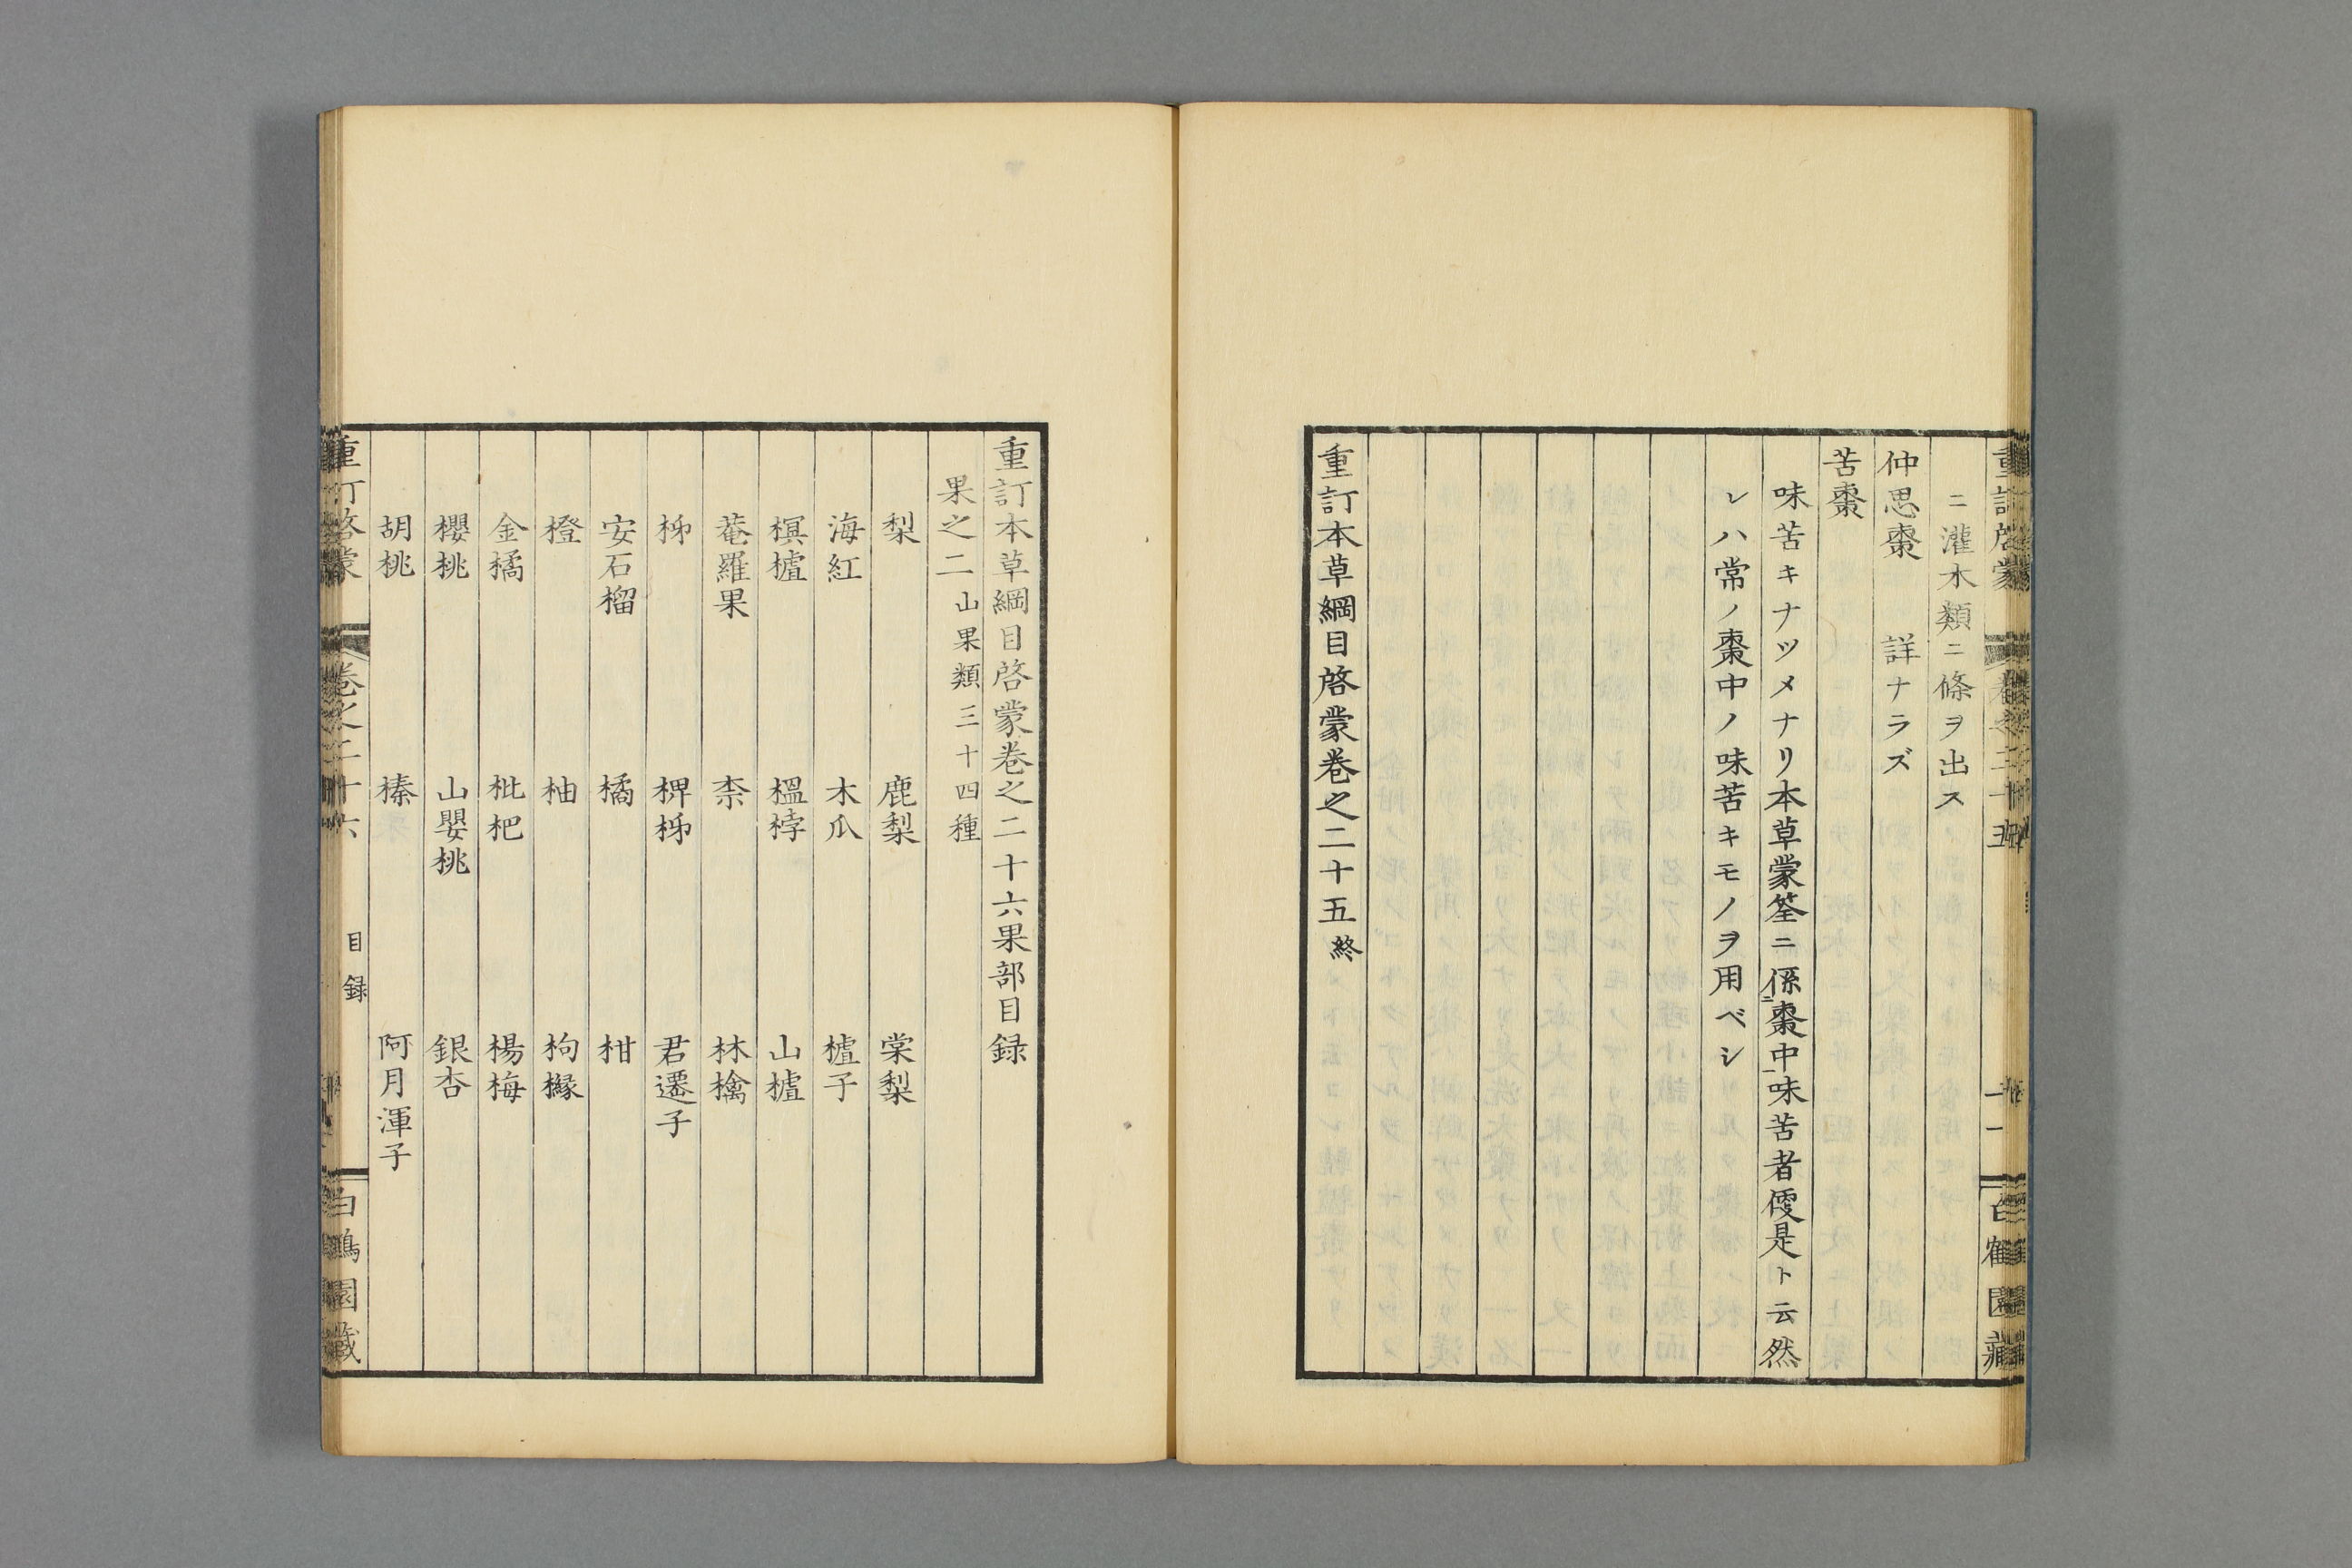 ニ灌木類ニ條ヲ出ス
仲思棗　詳ナラズ
苦棗
味苦キナツメナリ本草蒙筌ニ係棗中味苦者優是ト云然
レハ常ノ棗中ノ味苦キモノヲ用ベシ
重訂本草綱目啓蒙巻之二十五終
重訂本草綱目啓蒙巻之二十六果部目録
果之二山果類三十四種
梨　鹿梨　棠梨
海紅　木瓜　樝子
榠樝　榲桲　山樝
菴羅果　柰　林檎
柹　椑柹　君遷子
安石榴　橘　柑
橙　柚　枸櫞
金橘　枇杷　楊梅
櫻桃　山嬰桃　銀杏
胡桃　榛　阿月渾子
重訂啓蒙　巻之二十六　目録